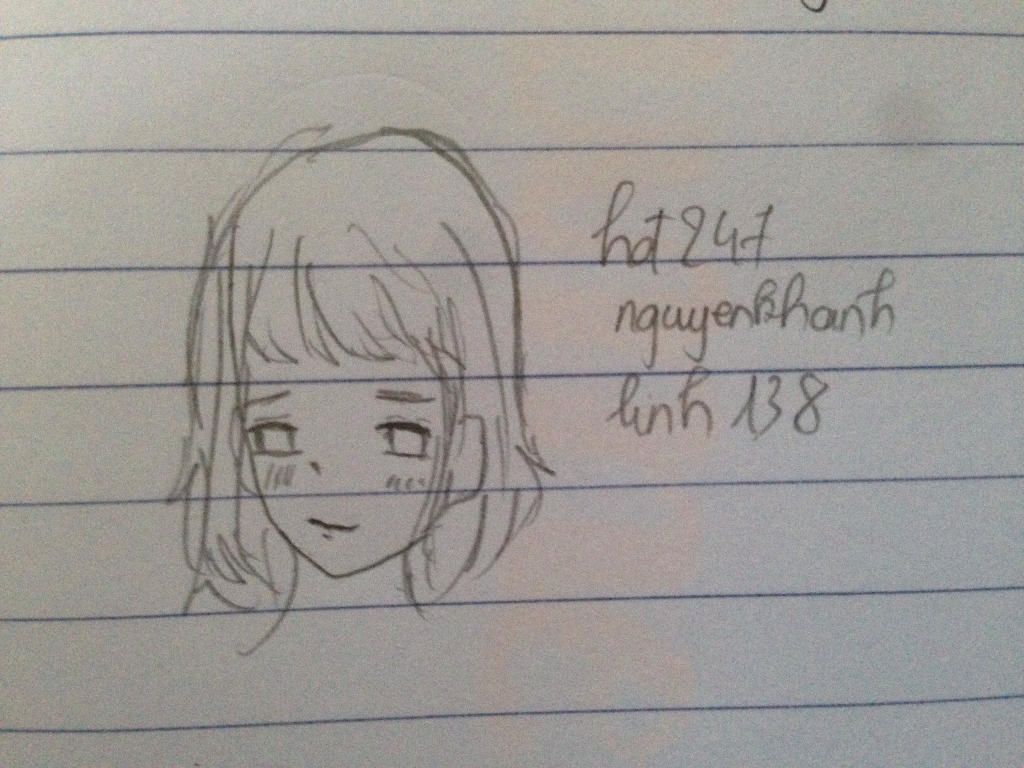 hot247
nguyenkhanh
linh 138